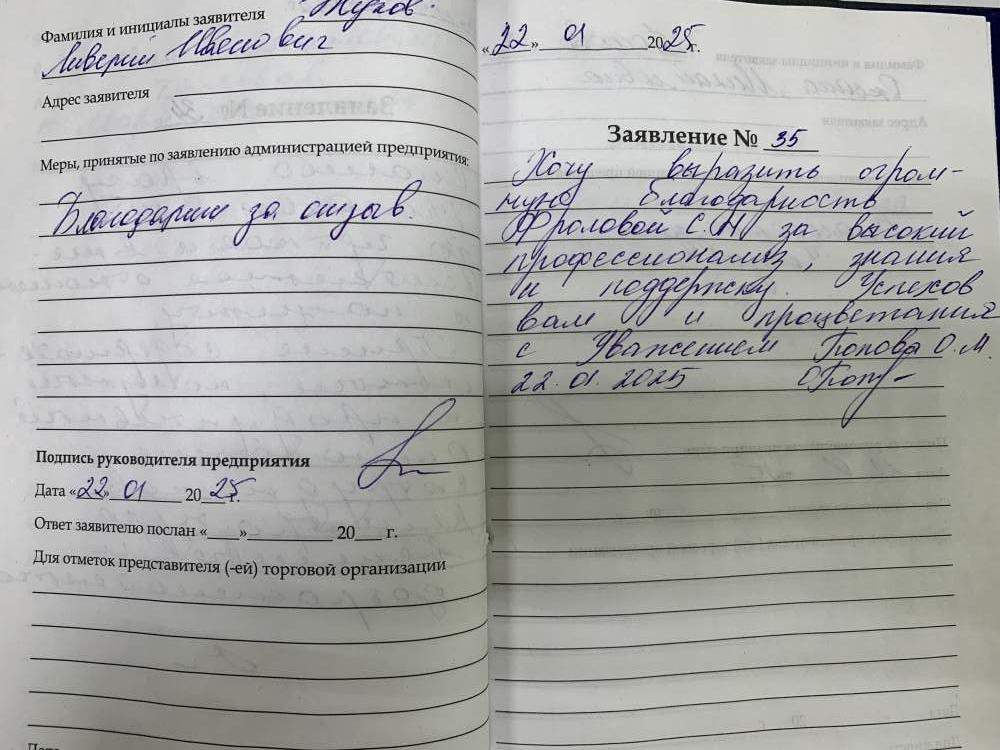 Фамилия и инициалы заявителя Жуков
Ливерий Иванович
Адрес заявителя
Меры, принятые по заявлению администрацией предприятия:
Благодарим за отзыв.
Подпись руководителя предприятия
Дата «22» 01 2025 г.
Ответ заявителю послан «____»__________ 20___ г.
Для отметок представителя (-ей) торговой организации
«22» 01 2025г.
Заявление № 35
Хочу выразить огром-
ную благодарность
Фроловой С.Н за высокий
профессионализ, знания
и поддержку. Успехов
вам и процветания
с Уважением Попова О.М.
22.01.2025